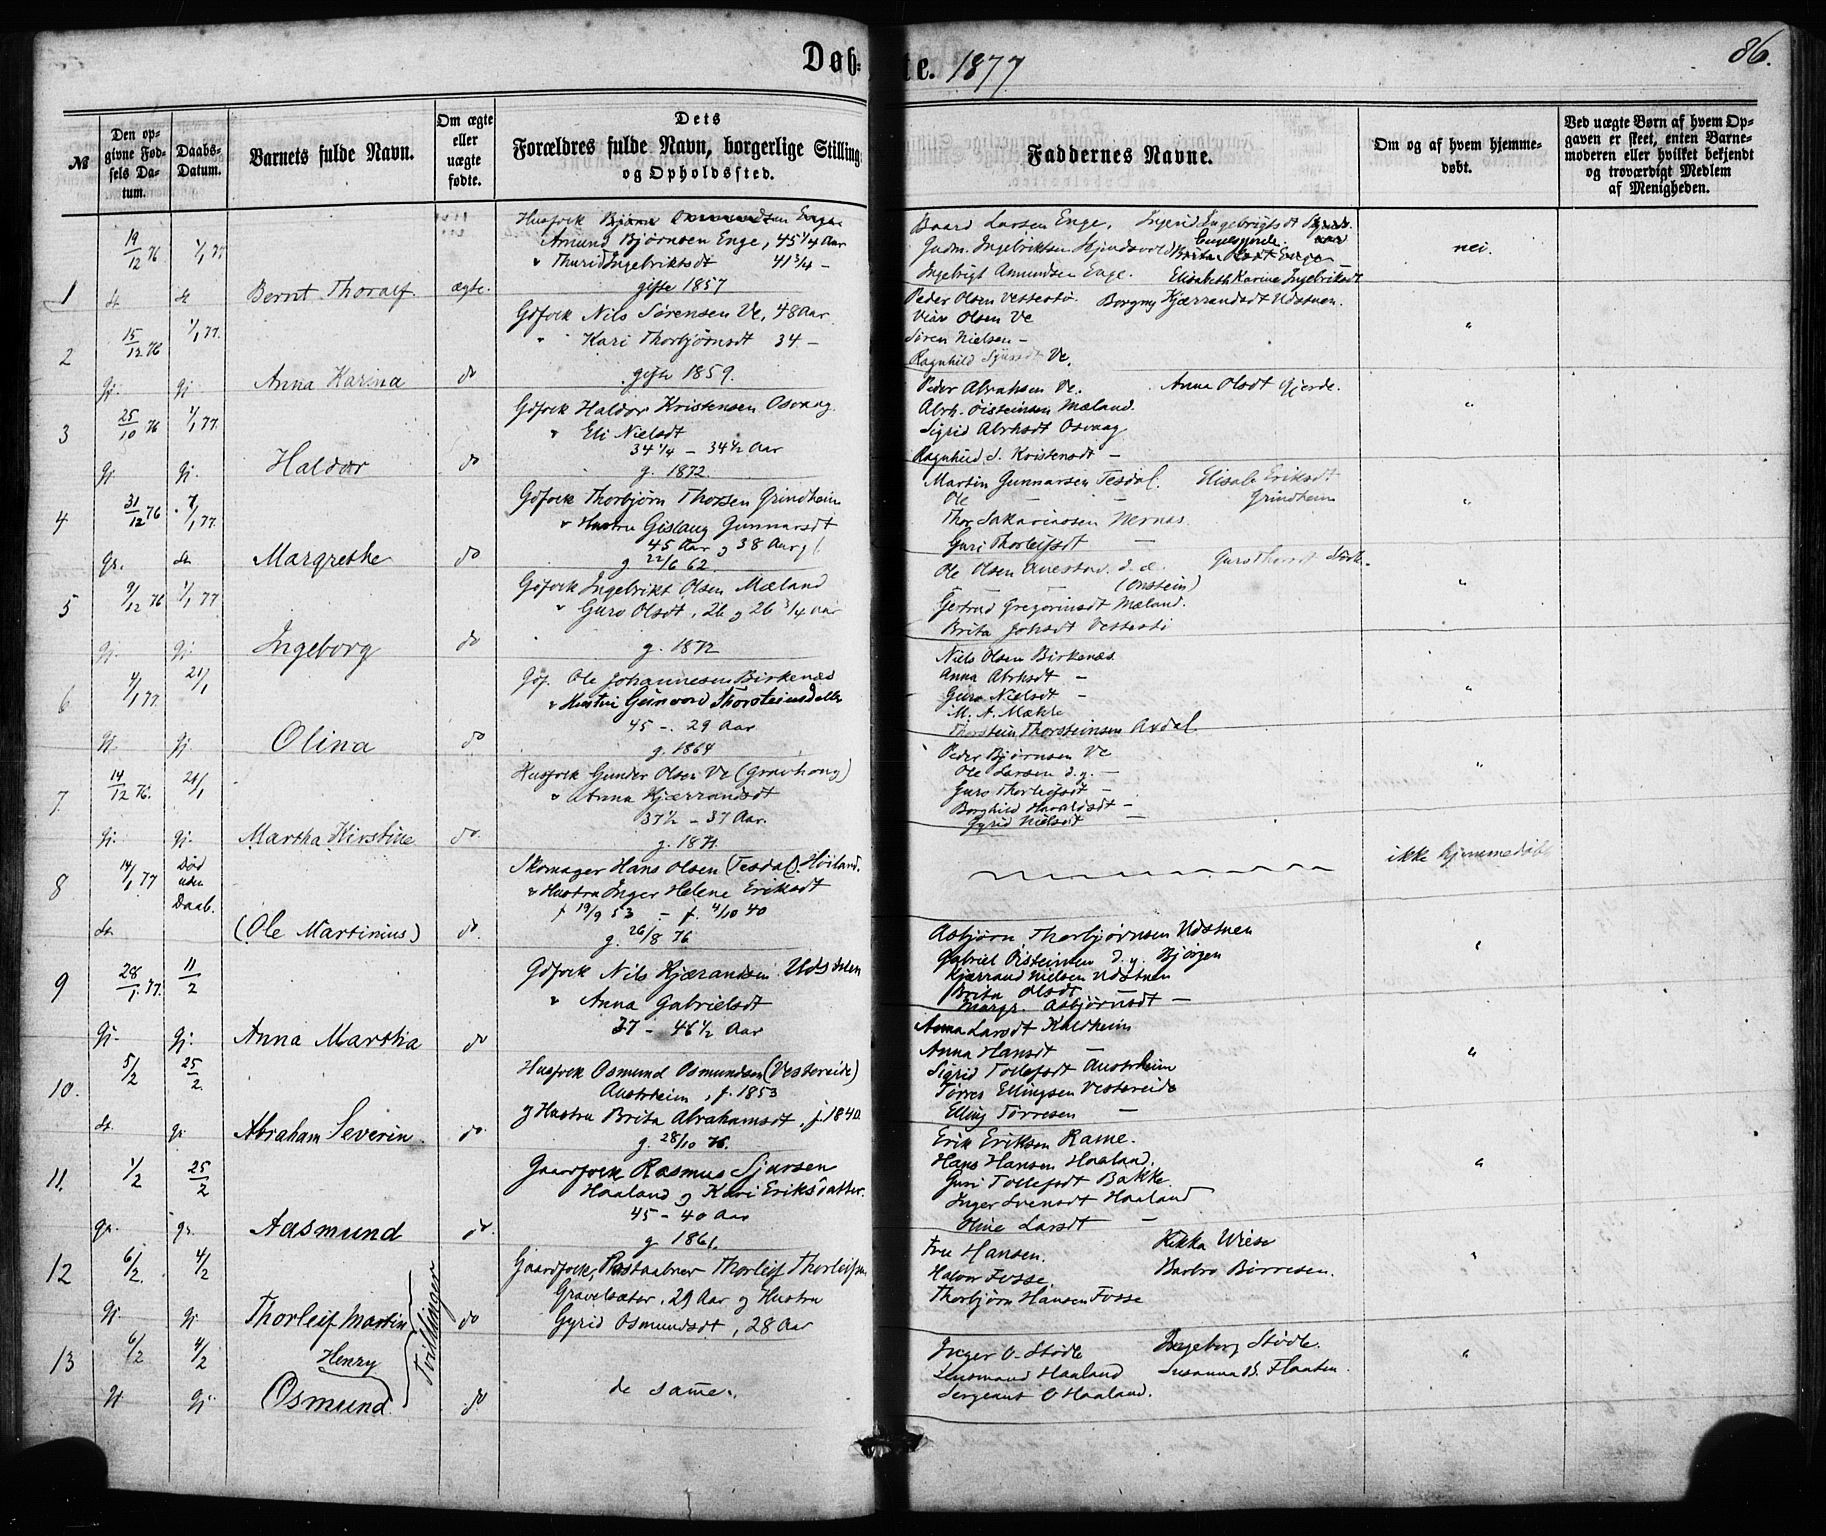 Døb- te. 1877
86.
№
Den op-
givne Fød-
sels Da-
tum.
Daabs-
Datum.
Barnets fulde Navn.
Om ægte
eller
uægte
fødte.
Dets
Forældres fulde Navn, borgerlige Stilling
og Opholdssted.
Faddernes Navne.
Om og af hvem hjemme-
døbt.
Ved uægte Børn af hvem Op-
gaven er skeet, enten Barne-
moderen eller hvilket bekjendt
og troværdigt Medlem
af Menigheden.
1
19/12 76
1/1 77
Bernt Thoralf.
ægte.
Husfolk
Amund Bjørnsen Enge, 45 1/4 Aar
" Thurid Ingebriktsdt 41 3/4 –
gifte 1857
Baard Larsen Enge,
Gudm. Ingebriktsen
Ingebrigt Amundsen Enge. Elisabeth Karine Ingebriktsdt
nei.
2
15/12 76
1/1 77.
gj. gj.
Anna Karina
do
Gdfolk Nils Sørensen Ve, 48 Aar
" Kari Thorbjørnsdt 34 –
gifte 1859.
Peder Olsen Vestestø. Borgny Kjærrandsdt Udstuen.
Olsen Ve
Søren Nielsen –
Ragnhild Sjursdt Ve.
"
3
25/10 76
1/1 77.
gj. gj.
Haldor
do
Gdfolk Haldor Kristensen Osvaag.
" Eli Nielsdt
34 1/4 – 34 1/2 Aar
g. 1872.
Peder Abrahsen Ve. Anna Olsdt Gjerde.
Abrh. Øisteinsen Mæland.
Sigrid Abrhsdt Osvaag
Ragnhild S. Kristensdt –
"
4
31/12 76
1/1 77.
Margrethe
do
Gdfolk Thorbjørn Thorsen Grindheim
" Hustru Gislaug Gunnarsdt
45 Aar og 38 Aar
g 22/6 62.
Martin Gunnarsen Tesdal. Elisabe Eriksdt
Ole – – Grindheim
Thor Sakariassen Nernes.
Guri Thorleifsdt –
"
5
9/12 76
1/1 77
gj. gj.
Ingeborg
do
Gdfolk Ingebrikt Olsen Mæland
" Guro Olsdt, 26 og 26 3/4 Aar
g. 1872
Ole Olsen d. æ.
– – (Onstein)
Gertrud Gregoriusdt Mæland.
Brita Johsdt Vestestø
"
6
4/1 77.
21/1
gj. gj.
Olina
do
Gdf. Ole Johannesen Birkenæs
" Hustru Gunvord Thorsteinsdatter
45 – 29 Aar
g. 1864
Niels Olsen Birkenæs
Anna Abrhsdt –
Guro Nielsdt –
M. A. Makle
Thorstein Thorsteinsen Axdal.
"
7
14/12 76.
21/1
gj. gj.
Martha Kirstine
do.
Husfolk Gunder Olsen Ve (Gravhaug)
" Anna Kjærrandsdt
37 1/2 – 37 Aar.
g. 1871.
Peder Bjørnsen Ve
Ole Larsen d. y. –
Guro Thorleifsdt –
Borghild Haraldsdt –
Gyrid Nielsdt –
"
8
14/1 77
Død
uden
Daab.
(Ole Martinius)
do.
Skomager Hans Olsen (Tesdal). Høiland.
" Hustru Inger Helene Eriksdt
f 19/9 53 – f. 4/10 40
g. 26/8 76
ikke hjemmedøbt
9
28/1 77.
11/2
gj. gj.
Anna Martha
do
Gdfolk Nils Kjærandsen Udstuen
" Anna Gabrielsdt
37 – 46 1/2 Aar
Asbjørn Thorbjørnsen Udstuen
Gabriel Øisteinsen d. y. Bjørgen
Kjærrand Nielsen Udstuen
Brita Olsdt –
Margr. Asbjørnsdt –
"
10.
5/2
25/2.
Abraham Severin
do.
Husfolk Osmund Osmundsen (Vestereide)
Austrheim, f. 1853
og Hustru Brita Abrahamsdt, f. 1840.
g. 28/10 76.
Anna Larsdt Kaldheim
Anna Hansdt –
Sigrid Tollefsdt Austrheim
Tørres Ellingsen Vestereide
Elling Tørresen –
"
11.
1/2
25/2
gj. gj.
Aasmund
do.
Gaardfolk Rasmus Sjursen
Haaland og Kari Eriksdatter.
45 – 40 Aar
g. 1861.
Erik Eriksen Rame.
Hans Hansen Haaland.
Guri Tollefsdt Bakke.
Inger Svensdt Haaland
Oline Larsdt –
"
12
6/2.
4/2
gj. gj.
Thorleif Martin
do
Tvillinger
Gaardfolk, Postaabner Thorleif Thorleifsen
Gravelsæter, 29 Aar og Hustru
Gyrid Osmundsdt, 28 Aar
Fru Hansen. Rikka Wiese
Halvor Fosse. Barbro Børresen.
Thorbjørn Hansen Fosse
"
13
6/2
4/2
gj. gj.
Henry
Osmund.
do
de samme.
Inger O. Stødle Ingeborg Stødle.
Lensmand Haaland Susanna B. Flaaten.
Sergeant O Haaland.
"